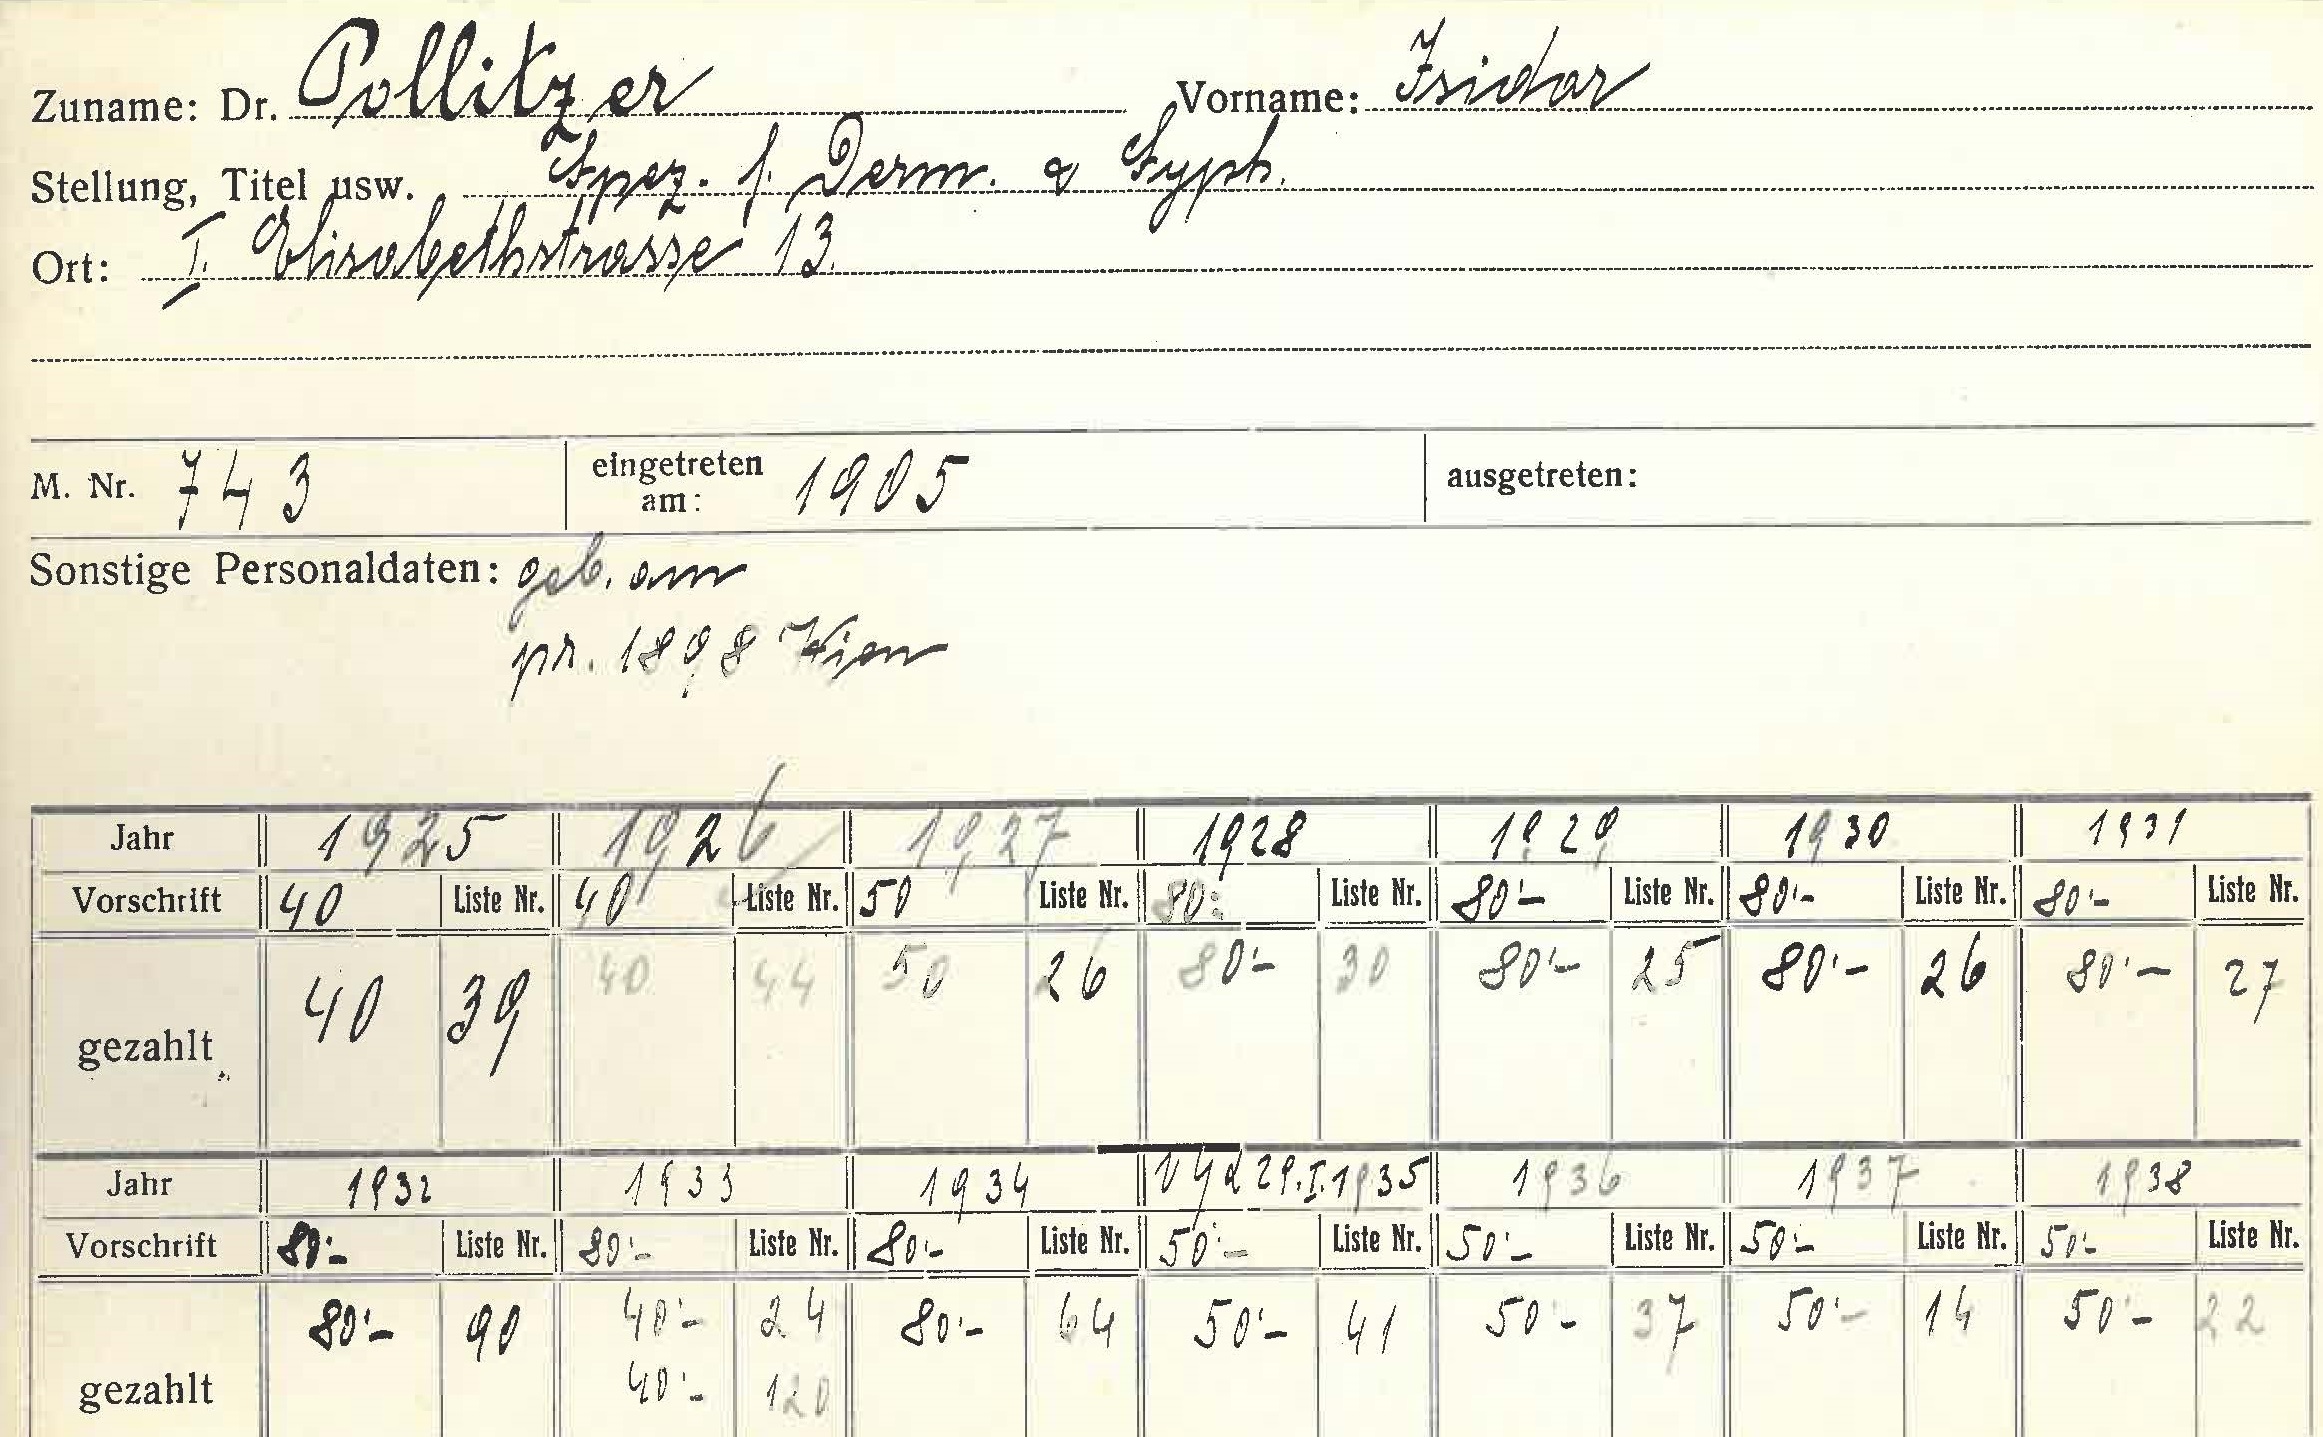 Zuname: Dr. Pollitzer Vorname: Isidor
Stellung, Titel usw. Spez. f. Derm. & Syph.
Ort: I. Elisabethstrasse 13.
M. Nr. 743 eingetreten am: 1905 ausgetreten:
Sonstige Personaldaten: geb. am
pr. 1898 Wien
Jahr 1925 1926 1927 1928 1929 1930 1931
Vorschrift 40 Liste Nr. 40 Liste Nr. 50 Liste Nr. 80:- Liste Nr. 80'- Liste Nr. 80'- Liste Nr. 80'- Liste Nr.
gezahlt 40 39 40 44 50 26 80'- 30 80'- 25 80'- 26 80'- 27
Jahr 1932 1933 1934 29.I.1935 1936 1937 1938
Vorschrift 80'- Liste Nr. 80'- Liste Nr. 80'- Liste Nr. 50'- Liste Nr. 50'- Liste Nr. 50'- Liste Nr. 50'- Liste Nr.
gezahlt 80'- 90 40'- 24 80'- 64 50'- 41 50'- 37 50'- 14 50'- 22
40'- 120